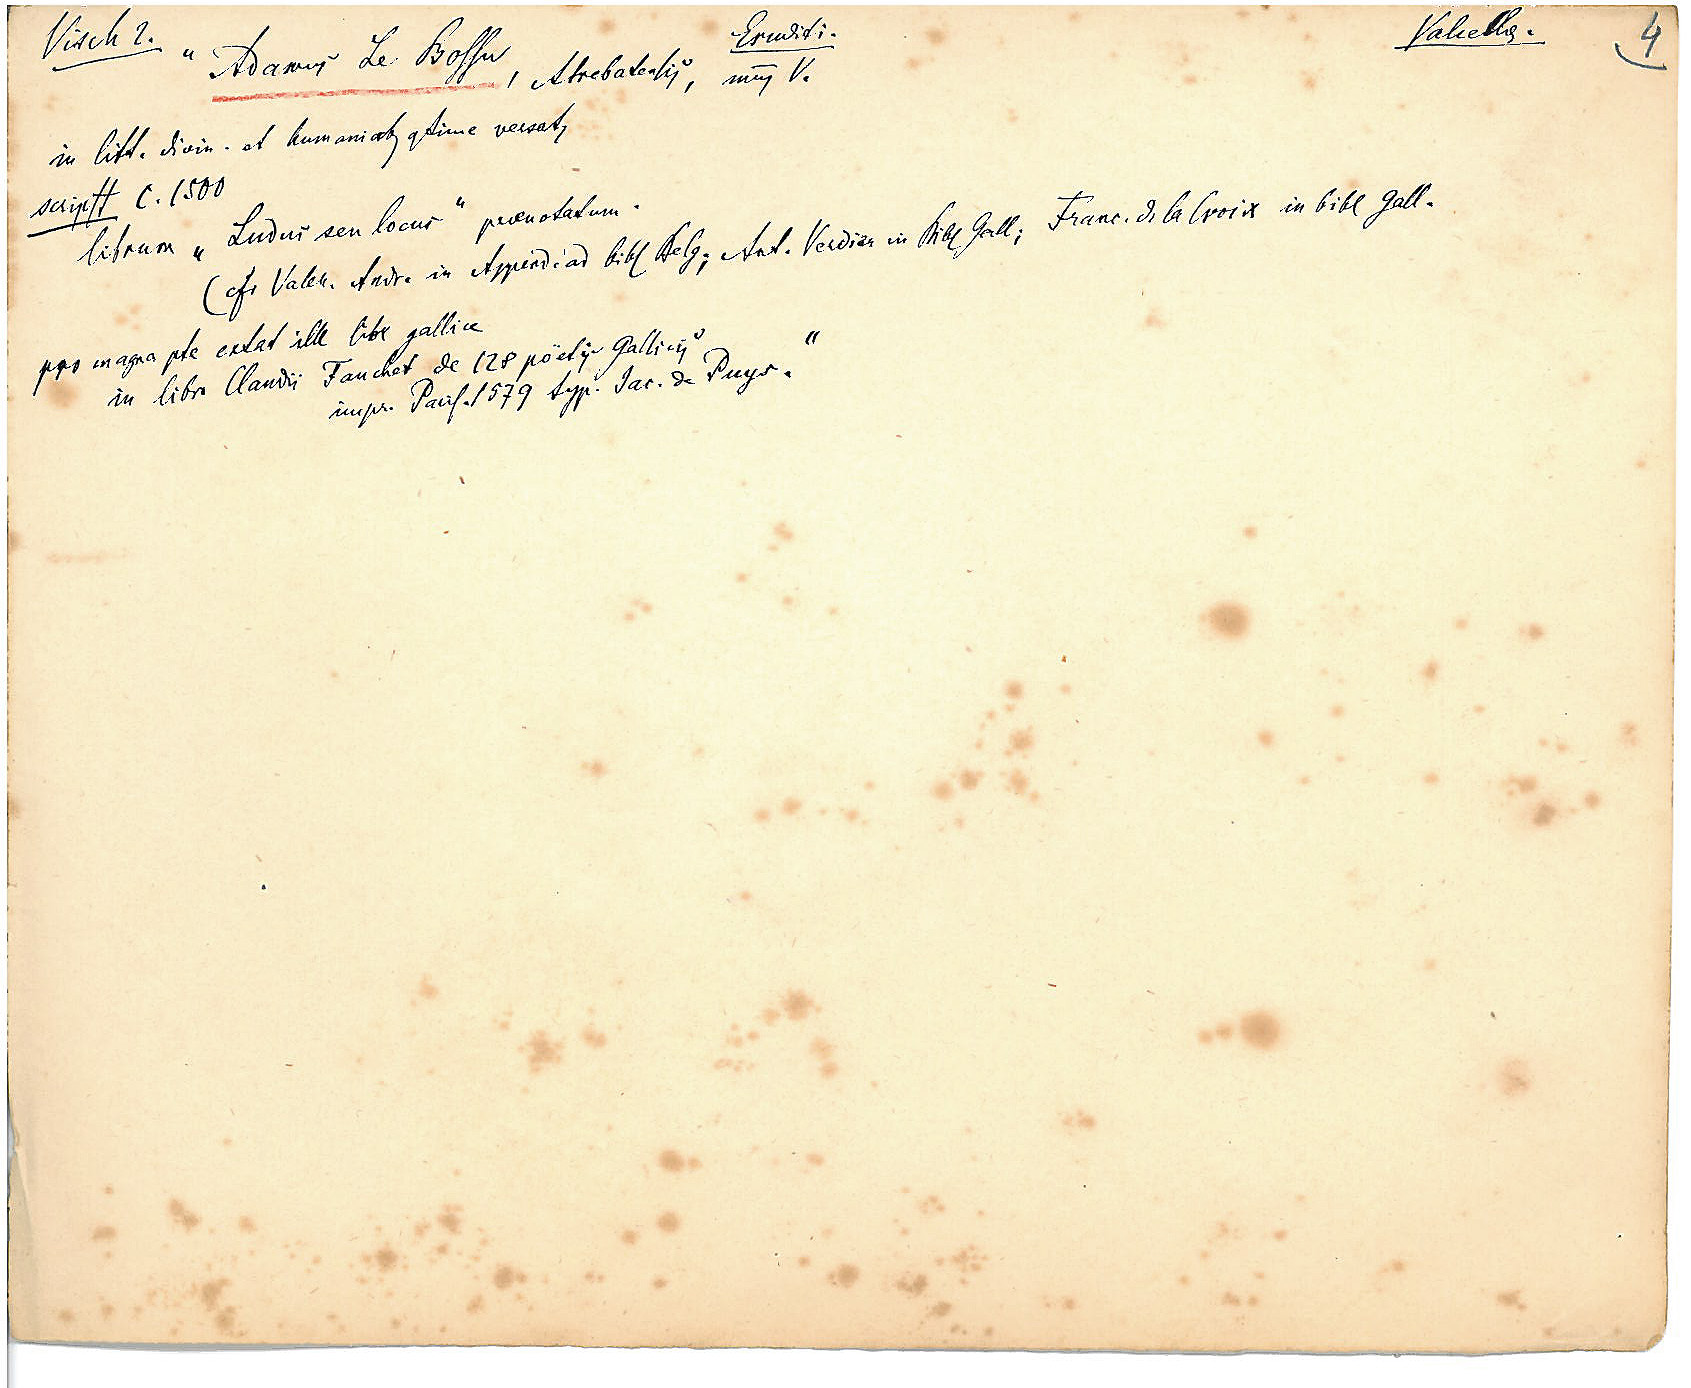 Visch 2. Eruditi. Valcella. 4
„ Adamus Le Bossu, Atrebatensis, mon V.
in litt. divin. et humanioribus optime versatus
scripsit c. 1500
librum „Ludus seu locus“ praenotatum.
(cfr Valer. Andr. in Append. ad bibl Belg; Ant. Verdier in Bibl Gall; Franc. de la Croix in bibl gall.
pro magna pte extat ille liber gallice
in libro Claudii Fauchet de 128 poëtis Gallicis
impr. Paris. 1579 typ. Jac. de Puys. “